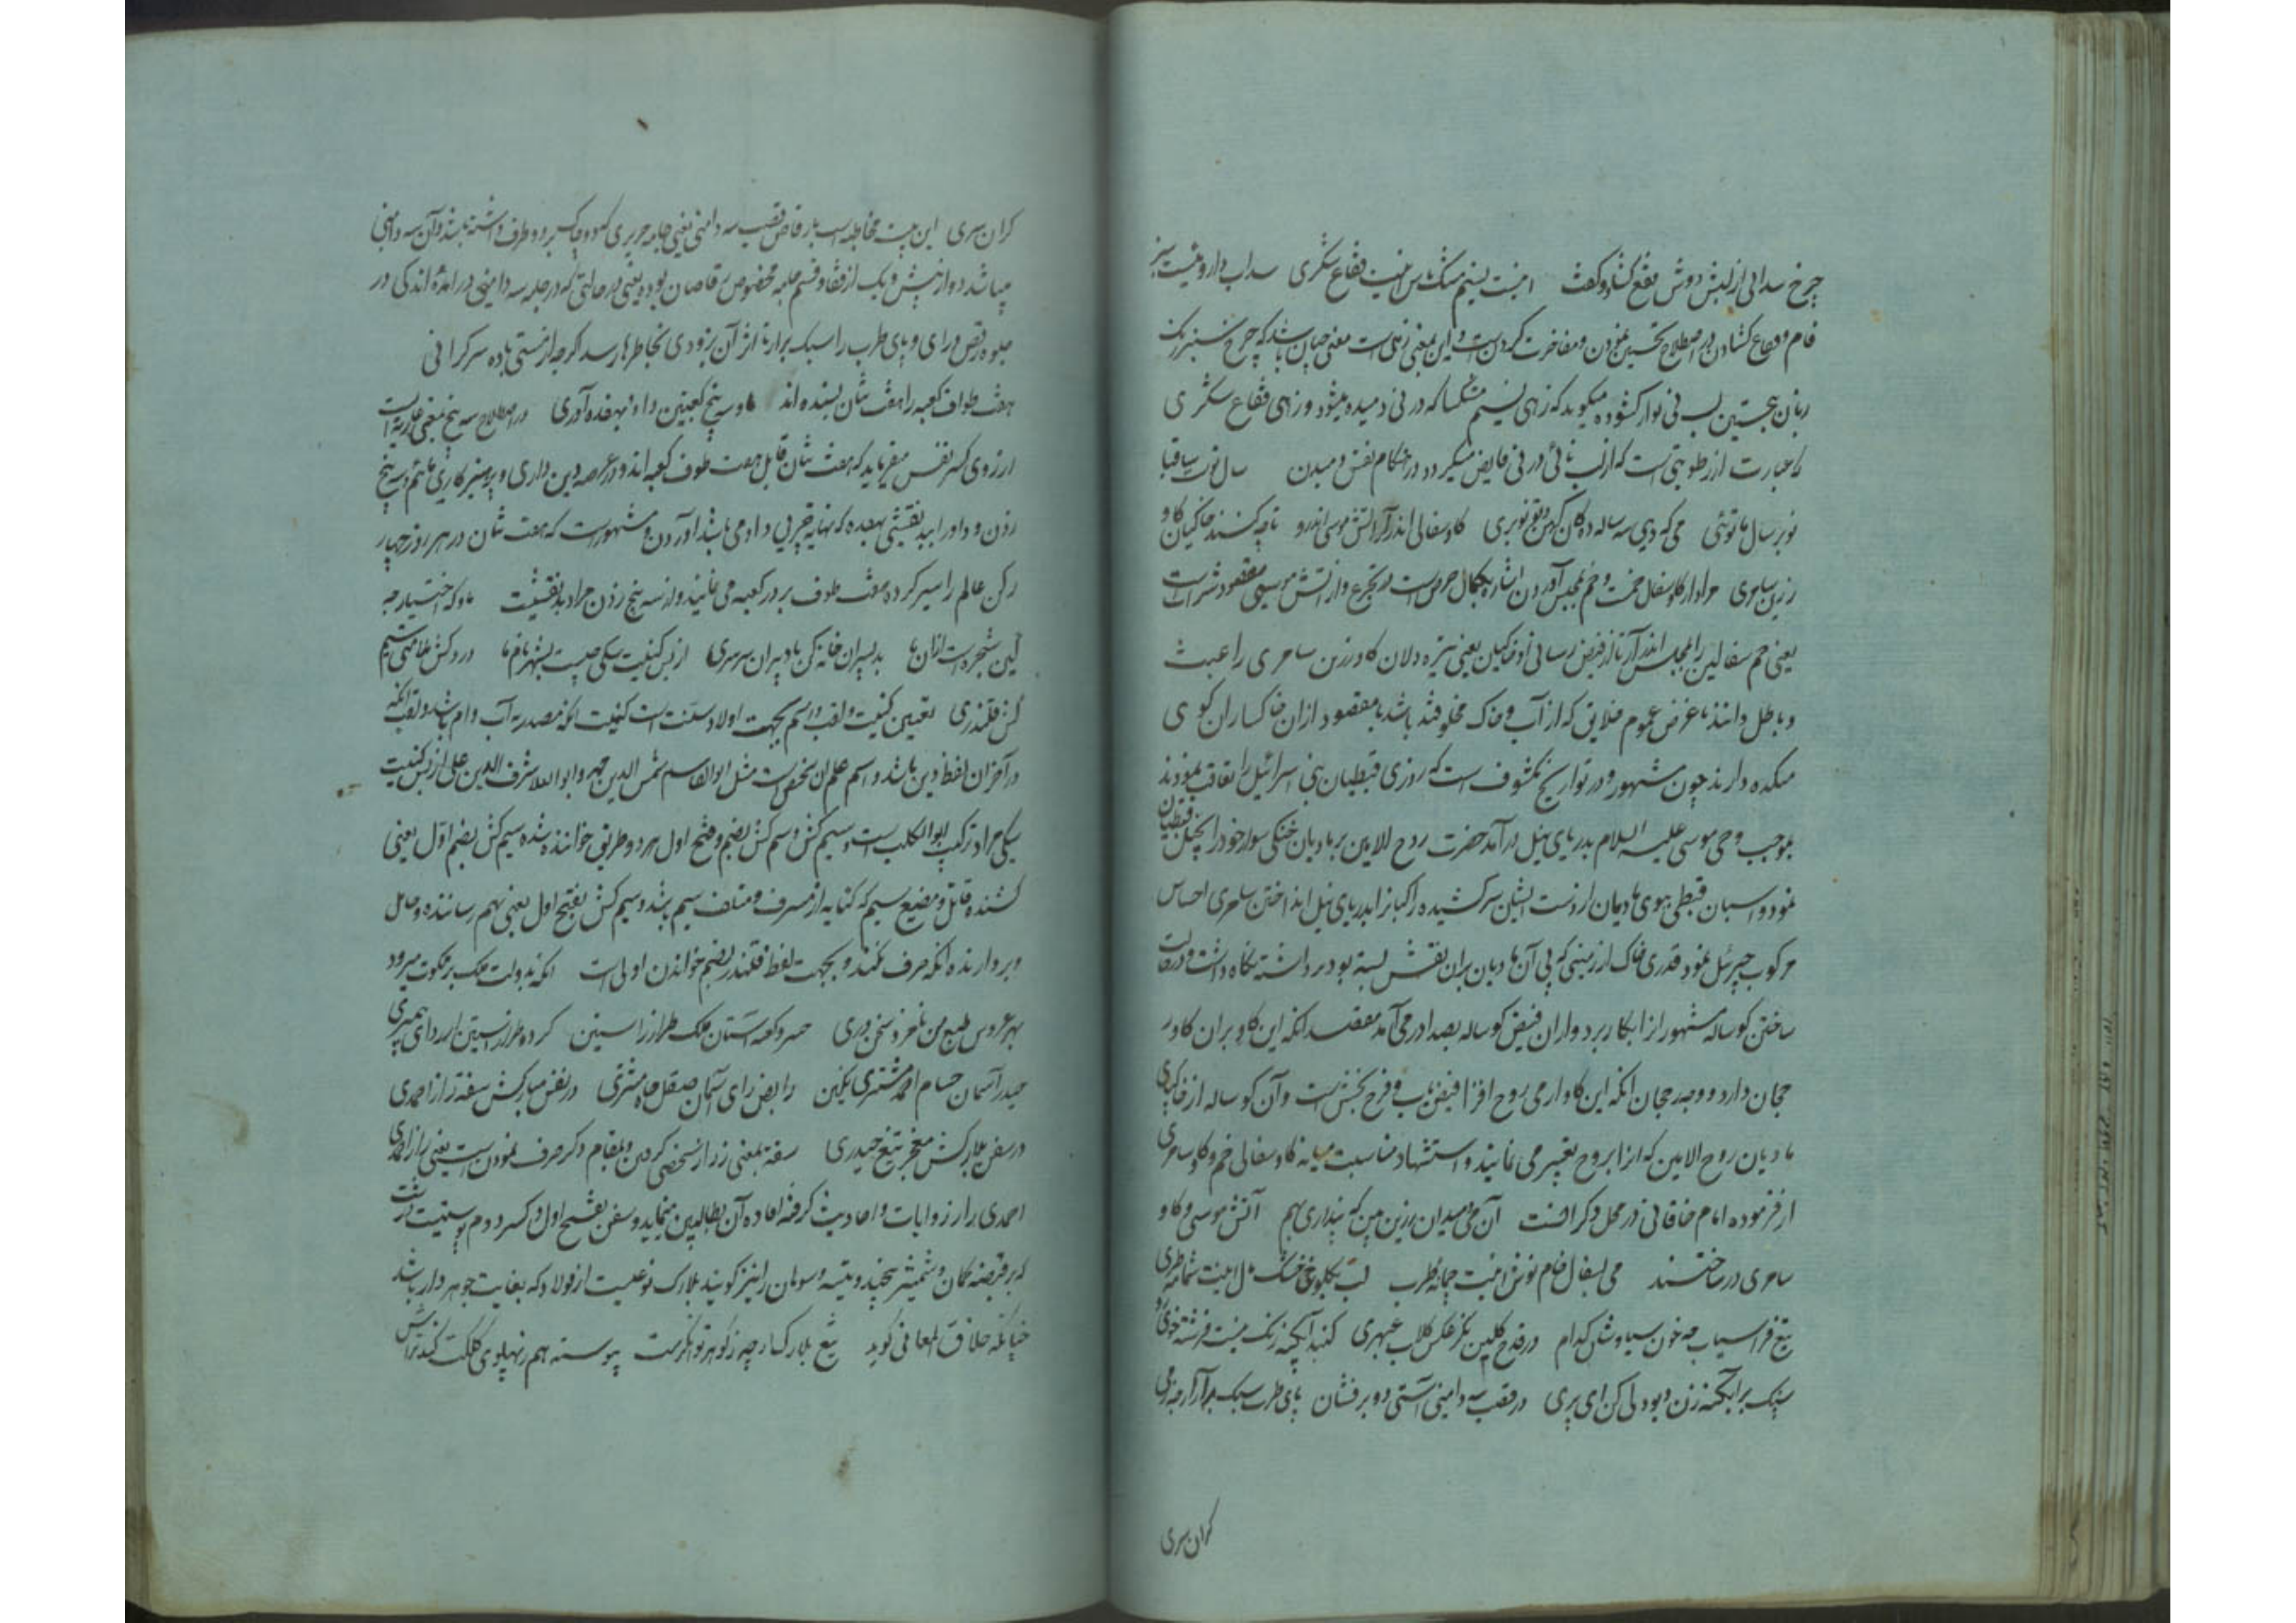 چرخ سدابی از لبش دوش فقع گشاد و گفت اینت نسیم مشک پاش اینت فقاع شکری سداب دارو ئیست سبز
فام و فقاع گشادن در اصطلاح تحسین نمودن و مفاخرت کردن است و این بمعنی زملی است معنی چنان باشد که چرخ سبز رنگ
زبان بتحسین لب نی نواز گشوده میگوید که زهی نسیم مشکسا که در نی دمیده میشود و زهی فقاع شکری
را عبارت از رطوبتی است که از لب نائی در نی فایض میگردد در هنگام نفس دمیدن سال نو است ساقیا
نوبر سال ما توئی می که دهی سه ساله ده کان کهن به نوبری گاو سفالی اندر آر آتش موسی اندرو تا چه کنند خاکیان گاو
زرین سامری مراد از گاو سفال خمست و خم بمجلس آوردن اشاره بکمال حرص است در تجرع و از آتش موسی مقصود شراب است
یعنی خم سفالین را بمجلس اندر آر تا از فیض رسانی او خاکیان یعنی تیره دلان گاو زرین سامری را عبث
و باطل دانند یا غرض عموم خلایق که از آب و خاک مخلوقند باشد یا مقصود ازان خاکساران کوی
میکده دارند چون مشهور و در تواریخ مکشوف است که روزی قبطیان بنی اسرائیل را تعاقب نمودند
بموجب وحی موسی علیه السلام بدریای نیل درآمد حضرت روح الامین بر مادیان خنکی سوار خود را بخیل قبطیان
نمود و اسبان قبطی ببوی مادیان از دست ایشان سر کشیده راکبانرا بدریای نیل انداختن سامری احساس
مرکوب جبرئیل نمود قدری خاک از زمینی که پی آن مادیان بران نقش بسته بود برداشته نگاه داشت و در وقت
ساختن گوساله مشهور از ابکار برد و ازان فیض گوساله بصدا درمی آمد مقصد آنکه این گاو بران گاو ر
جحان دارد و وجه رجحان آنکه این گاو از می روح افزا فیض یاب و فرح بخش است و آن گوساله از خاک پی
مادیان روح الامین که ازو بروح تعبیر می نمایند و استشهاد مناسبت میانه گاو سفالی خم و گاو سامری
از فرموده امام خاقانی در محل دیگر اینست آن می و میدان زرین بین که پنداری بهم آتش موسی و گاو
سامری در ساختند می بسفال خام نوش اینت چمانه طرب لب بکلوخ خشک مال اینت شمامه طری
تیغ فراسیاب چه خون سیاوشان کدام در قدح گلین نگر عکس گلاب عبهری گنبد آبگینه رنگ نیست فرشته خوی رو
سنگ بر آبگینه زن دیو دلی کن ای پری در قصب سه دامنی آستی دو برفشان پای طرب سبک برآر ار چه ز می
گران سری
گران سری این بیت مخاطبه است به رقاص قصب سه دامنی یعنی جامه حریری که دو چاک بر دو طرف داشته باشد و آن سه دامنی
میباشد دو از پیش و یک از قفا و قسم جامه مخصوص رقاصان بود یعنی در حالتی که در جامه سه دامنی درآمدۀ اندکی در
جلوه رقص درای و پای طرب را سبک بردار تا اثر آن بزودی بخاطرها رسد گرچه از مستی باده سرگرانی
هفت طواف کعبه را هفت تنان بسنده اند ما و سه پنج کعبتین داو به هفده آوری در اصطلاح سه پنج بمعنی عاریت است
از روی کسر نفس میفرماید که هفت تنان قابل هفت طوف کعبه اند و در عرصه دین داری و پرهیزکاری ما ئم و سه پنج
زدن و داو را به بدنقشی بهفده که نهایه حریفی و ادمی باشد آوردن و مشهور است که هفت تنان در هر روز چهار
رکن عالم را سیر کرده هفت طوف بر دور کعبه می نمایند و از سه پنج زدن مراد بدنقشیست ما و که اختیار چه
این شجره است ازان ما بد پسران خانه کن بادپیران سرسری از پس کنیت سگی چیست بشهر نام ما دردکش ملامتی سیم
کش قلندری تعیین کنیت و لقب و اسم بجهت اولاد سنت است کنیت آنکه مصدر به آب و ام باشد و لقب آنکه
در آخر آن لفظ دین باشد و اسم علم آن شخص است مثل ابوالقاسم شمس الدین محمد و ابوالعلا شرف الدین علی از پس کنیت
سگی مراد ترکیب ابوالکلب است و سیم کش و سم کش بضم و فتح اول هر دو طریق خوانده شده سیم کش بضم اول یعنی
کشنده قاتل و مضیع سیم که کنایه از مسرف و متلف سیم باشد و سیم کش بفتح اول یعنی بهم رساننده و حامل
و بردارنده آنکه صرف نکند و بجهت لفظ قلندر بضم خواندن اولی است آنکه بدولت ملک بر ملکوت میرود
بهر عروس طبع من نامزد سخن وری خسرو کعبه آستان ملک طراز راستین کرده طراز آستین از ردای حمیری
حیدر آسمان حسام احمد مشتری نگین رایض رای آسمان صیقل ماه مشتری در نفس مبارکش سفته راز احمدی
در سفن بلارکش معجز تیغ حیدری سفته بمعنی زر از شخصی گرفتن و بمقام دیگر صرف نمودن است یعنی راز احمدی
احمدی را از روایات و احادیث گرفته افاده آن بطالبین مینماید و سفن بفتح اول و کسر دوم پوستیست درشت
که بر قبضه کمان و شمشیر پیچند و تیشه و سوهان را نیز گویند بلارک نوعیست از فولاد که بغایت جوهردار باشد
چنانکه خلاق المعانی گوید تیغ بلارک ار چه ز گوهر توانگرست پیوسته هم ز پهلوی کلکت کند تراش